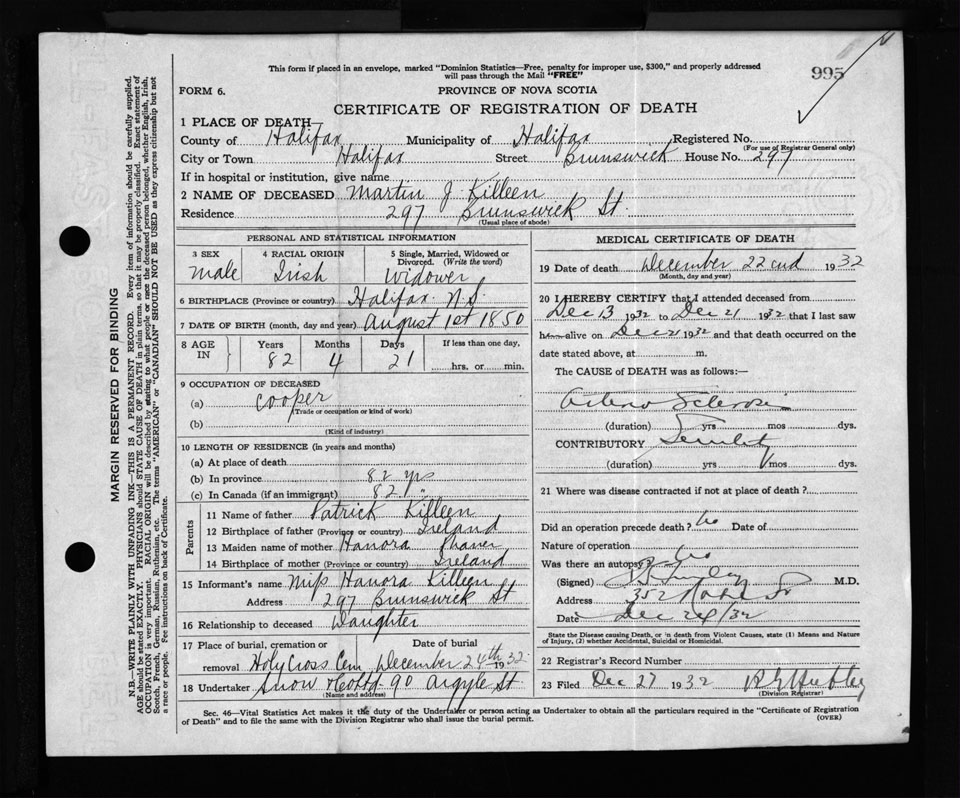 This form if placed in an envelope, marked "Dominion Statistics—Free, penalty for improper use, $300," and properly addressed
will pass through the Mail "FREE"
995
FORM 6.
PROVINCE OF NOVA SCOTIA
CERTIFICATE OF REGISTRATION OF DEATH
1 PLACE OF DEATH
County of Halifax Municipality of Halifax Registered No.
(For use of Registrar General only)
City or Town Halifax Street Brunswick House No. 297
If in hospital or institution, give name
2 NAME OF DECEASED Martin J Killeen
Residence 297 Brunswick St
(Usual place of abode)
PERSONAL AND STATISTICAL INFORMATION
3 SEX 4 RACIAL ORIGIN 5 Single, Married, Widowed or
Divorced. (Write the word)
Male Irish Widower
6 BIRTHPLACE (Province or country) Halifax N.S.
7 DATE OF BIRTH (month, day and year) August 1st 1850
8 AGE IN Years Months Days If less than one day,
82 4 21 hrs. or min.
9 OCCUPATION OF DECEASED
(a) Cooper
(Trade or occupation or kind of work)
(b)
(Kind of industry)
10 LENGTH OF RESIDENCE (in years and months)
(a) At place of death
(b) In province 82 yrs
(c) In Canada (if an immigrant) 82 "
Parents
11 Name of father Patrick Killeen
12 Birthplace of father (Province or country) Ireland
13 Maiden name of mother Hanora
14 Birthplace of mother (Province or country) Ireland
15 Informant's name Miss Hanora Killeen
Address 297 Brunswick St
16 Relationship to deceased Daughter
17 Place of burial, cremation or Date of burial
removal Holy Cross Cem December 24th 1932
18 Undertaker Snow & Co Ltd 90 Argyle St
(Name and address)
MEDICAL CERTIFICATE OF DEATH
19 Date of death December 22nd 1932
(Month, day and year)
20 I HEREBY CERTIFY that I attended deceased from
Dec 13 1932 to Dec 21 1932 that I last saw
h alive on Dec 21 1932 and that death occurred on the
date stated above, at m.
The CAUSE of DEATH was as follows:—
Arterio Sclerosis
(duration) yrs mos dys.
CONTRIBUTORY Senility
(duration) yrs mos dys.
21 Where was disease contracted if not at place of death?
Did an operation precede death? No Date of
Nature of operation
Was there an autopsy? No
(Signed) M.D.
Address 352
Date Dec 24/32
State the Disease causing Death, or in death from Violent Causes, state (1) Means and Nature
of Injury, (2) whether Accidental, Suicidal or Homicidal.
22 Registrar's Record Number
23 Filed Dec 27 1932
(Division Registrar)
Sec. 46—Vital Statistics Act makes it the duty of the Undertaker or person acting as Undertaker to obtain all the particulars required in the "Certificate of Registration
of Death" and to file the same with the Division Registrar who shall issue the burial permit.
(OVER)
MARGIN RESERVED FOR BINDING
N.B.—WRITE PLAINLY WITH UNFADING INK—THIS IS A PERMANENT RECORD. Every item of information should be carefully supplied.
AGE should be stated EXACTLY. PHYSICIANS should STATE CAUSE OF DEATH in plain terms, so that it may be properly classified. Exact statement of
OCCUPATION is very important. RACIAL ORIGIN will be described by stating to what people or race the deceased person belonged, whether English, Irish,
Scotch, French, German, Russian, Ruthenian, etc. The terms "AMERICAN" or "CANADIAN" SHOULD NOT BE USED as they express citizenship but not
a race or people. See instructions on back of Certificate.